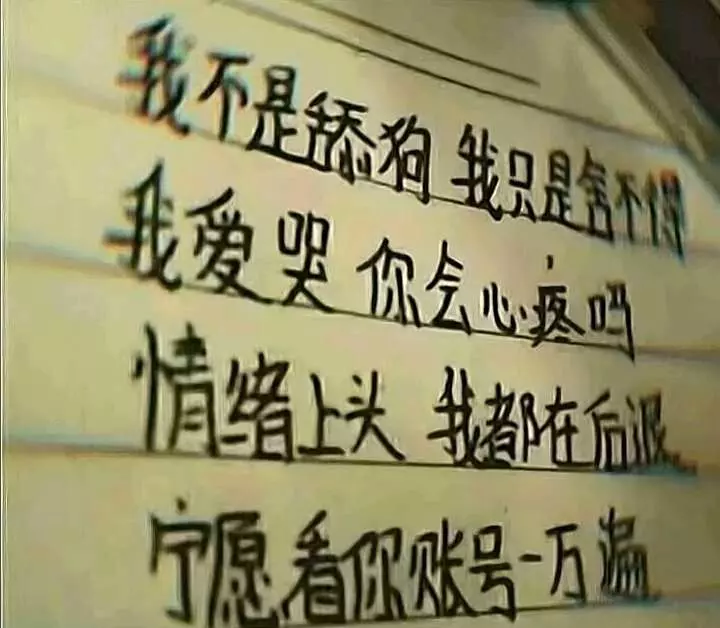 我不是舔狗 我只是舍不得
我爱哭 你会心疼吗
情绪上头 我都在后退
宁愿看你账号一万遍